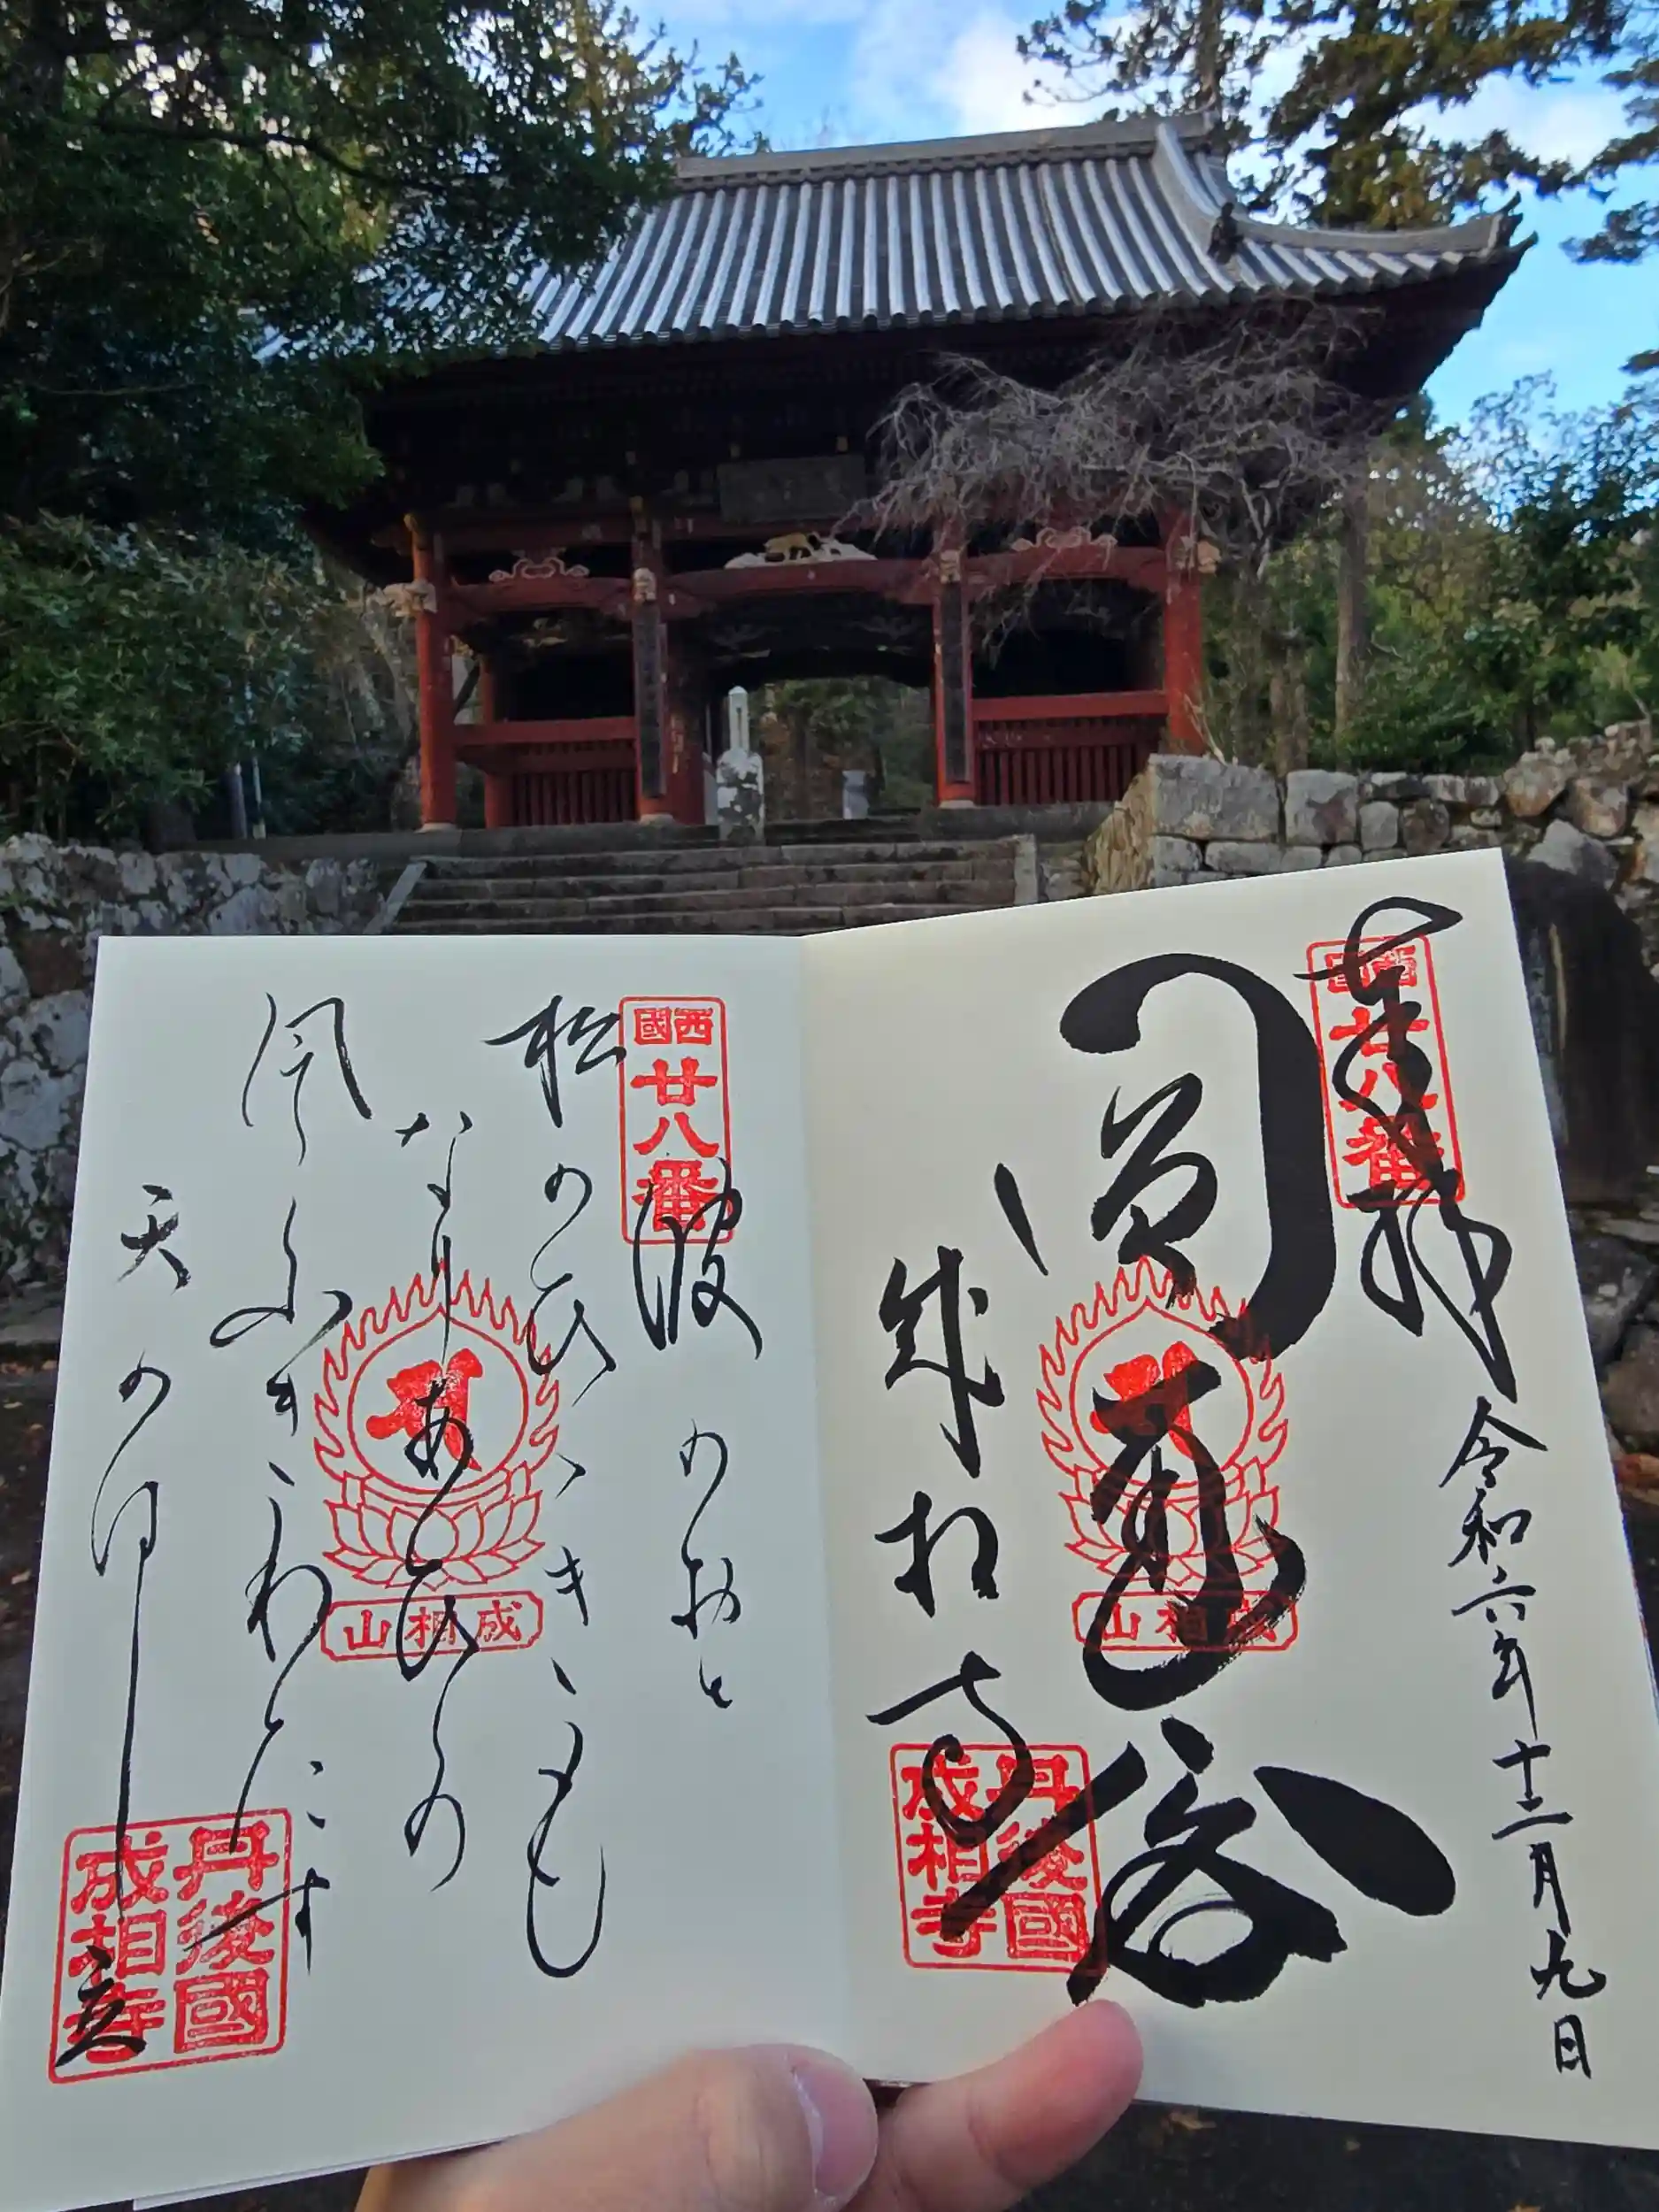 奉拝
西國
廿八番
令和六年十二月九日
圓通
成相山
成相寺
丹後國
成相寺
西國
廿八番
波のおと
松のひゞきも
なりあひの
風ふきわたす
天のはし立
成相山
丹後國
成相寺